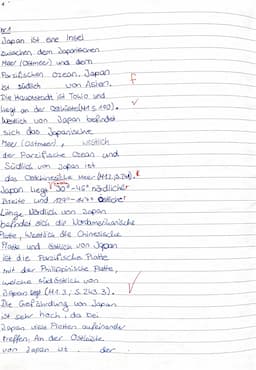 Nr.1
Japan ist eine Insel
zwischen dem Japanischen
Meer (Ostmeer) und dem
Pazifischen Ozean. Japan
ist südlich von Asien. f
Die Hauptstadt ist Tokio und
liegt an der Ostküste (M1 S.190).
Westlich von Japan befindet
sich das Japanische
Meer (Ostmeer), westlich
der Pazifische Ozean und
Südlich von Japan ist
das Ostchinesische Meer
Japan liegt 30°-45° nördlicher
Breite und östlicher
Länge. Nördlich von Japan
befindet sich die Nordamerikanische
Platte, Westlich die Chinesische
Platte und östlich von Japan
ist die Pazifische Platte
mit der Philippinische Platte,
welche südöstlich von
Japan liegt (M1.3, S.243.3).
Die Gefährdung von Japan
ist sehr hoch, da bei
Japan viele Platten aufeinander
treffen. An der Ostküste
von Japan ist der